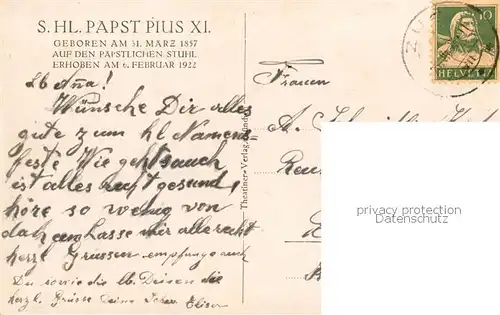 S. HL. PAPST PIUS XI.
GEBOREN AM 31. MÄRZ 1857
AUF DEN PÄPSTLICHEN STUHL
ERHOBEN AM 6. FEBRUAR 1922
Lb Aña!
Wünsche Dir alles
gute zum hl Namens-
feste Wie geht's auch
ist alles recht gesund,
höre so wenig von
dah lasse mir alle recht
herzl Grüssen empfange auch
Du sowie die lb. Deinen die
herzl. Grüsse Deine Elise
Theatiner-Verlag, München
Frauen
A.
10
HELVETIA
privacy protection
Datenschutz